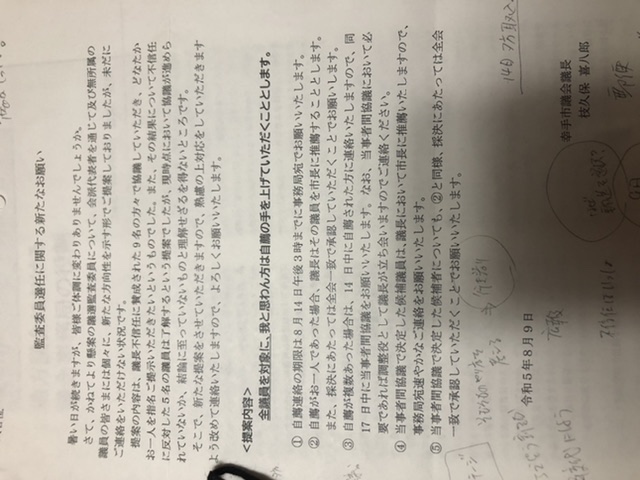 監査委員選任に関する新たなお願い
暑い日が続きますが、皆様ご体調に変わりありませんでしょうか。
さて、かねてより懸案の議選監査委員について、会派代表者を通じて及び無所属の
議員の皆さまには個々に、新たな方向性を示す形でご提案しておりましたが、未だに
ご連絡をいただけない状況です。
提案の内容は、議長不信任に賛成された9名の方々で協議していただき、どなたか
お一人を指名ご提示いただきたいというものでした。また、その結果について不信任
に反対した5名の議員は了解するという提案でしたが、現時点において協議が進めら
れていないか、結論に至っていないものと理解せざるを得ないところです。
そこで、新たな提案をさせていただきますので、熟慮の上対応をしていただきます
よう改めて連絡いたしますので、よろしくお願いいたします。
<提案内容>
全議員を対象に、我と思わん方は自薦の手を上げていただくこととします。
① 自薦連絡の期限は8月14日午後3時までに事務局宛でお願いいたします。
② 自薦がお一人であった場合、議長はその議員を市長に推薦することとします。
また、採決にあたっては全会一致で承認していただくことでお願いします。
③ 自薦が複数あった場合は、14日中に自薦された方に連絡いたしますので、同
17日中に当事者間協議をお願いいたします。なお、当事者間協議において必
要であれば調整役として議長が立ち会いますのでご連絡ください。
④ 当事者間協議で決定した候補議員は、議長において市長に推薦いたしますので、
事務局宛速やかなご連絡をお願いいたします。
⑤ 当事者間協議で決定した候補者についても、②と同様、採決にあたっては全会
一致で承認していただくことでお願いいたします。
令和5年8月9日
幸手市議会議長
枝久保 喜八郎